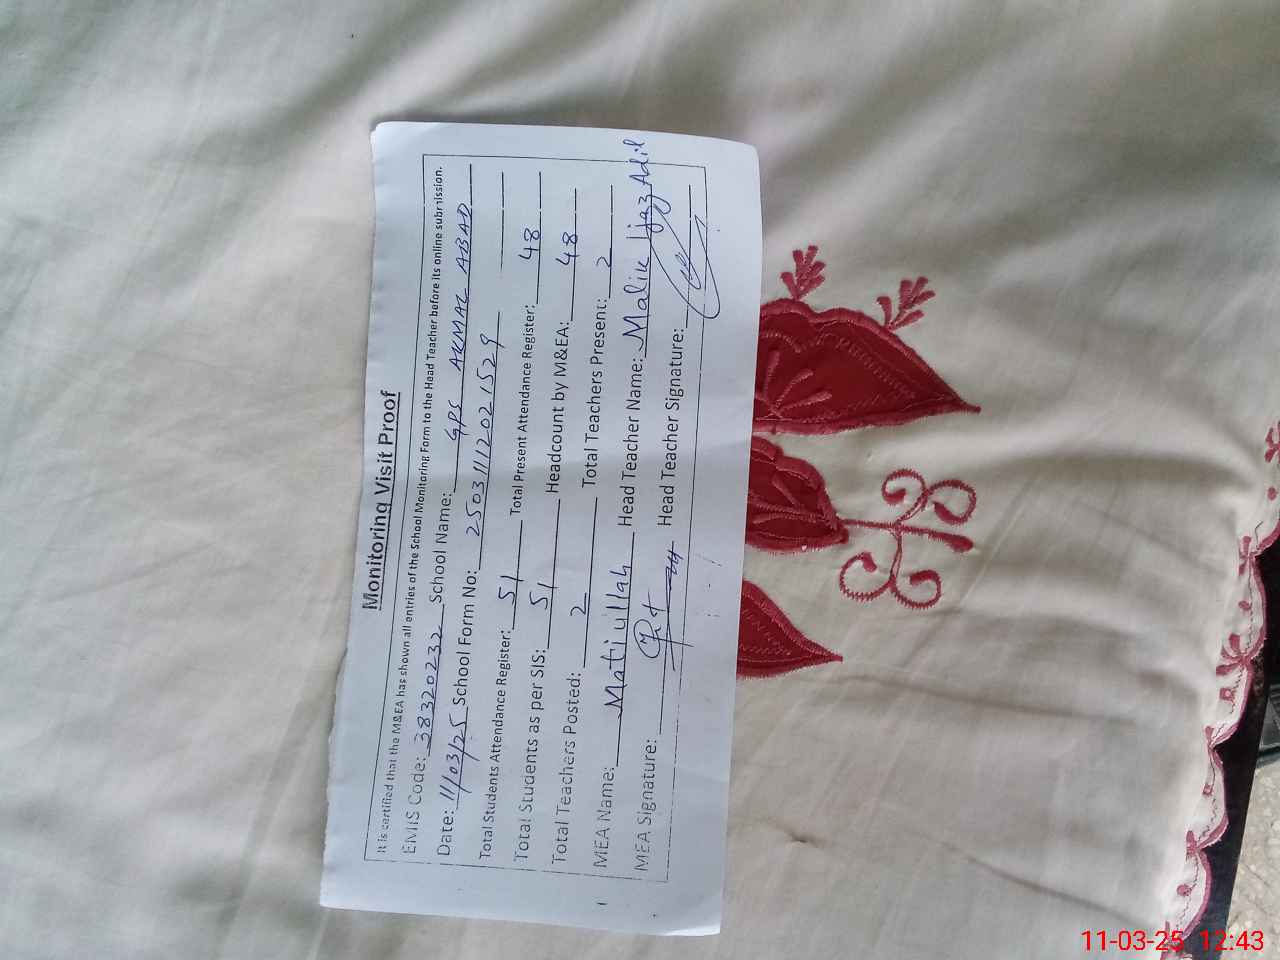 Monitoring Visit Proof
It is certified that the M&EA has shown all entries of the School Monitoring Form to the Head Teacher before its online submission.
EMIS Code: 38320232 School Name: GPS AKMAL ABAD
Date: 11/03/25 School Form No: 25031112021529
Total Students Attendance Register: 51 Total Present Attendance Register: 48
Total Students as per SIS: 51 Headcount by M&EA: 48
Total Teachers Posted: 2 Total Teachers Present: 2
MEA Name: Matiullah Head Teacher Name: Malik Ijaz Adil
MEA Signature: Head Teacher Signature:
11-03-25 12:43